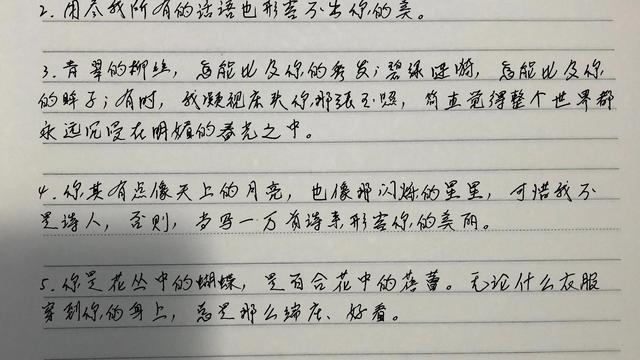 2. 用尽我所有的话语也形容不出你的美。
3. 青翠的柳丝，怎能比及你的秀发；碧绿涟漪，怎能比及你
的眸子；有时，我凝视床头你那张玉照，简直觉得整个世界都
永远沉浸在明媚的春光之中。
4. 你其有点像天上的月亮，也像那闪烁的星星，可惜我不
是诗人，否则，当写一万首诗来形容你的美丽。
5. 你是花丛中的蝴蝶，是百合花中的蓓蕾。无论什么衣服
穿到你的身上，总是那么端庄、好看。